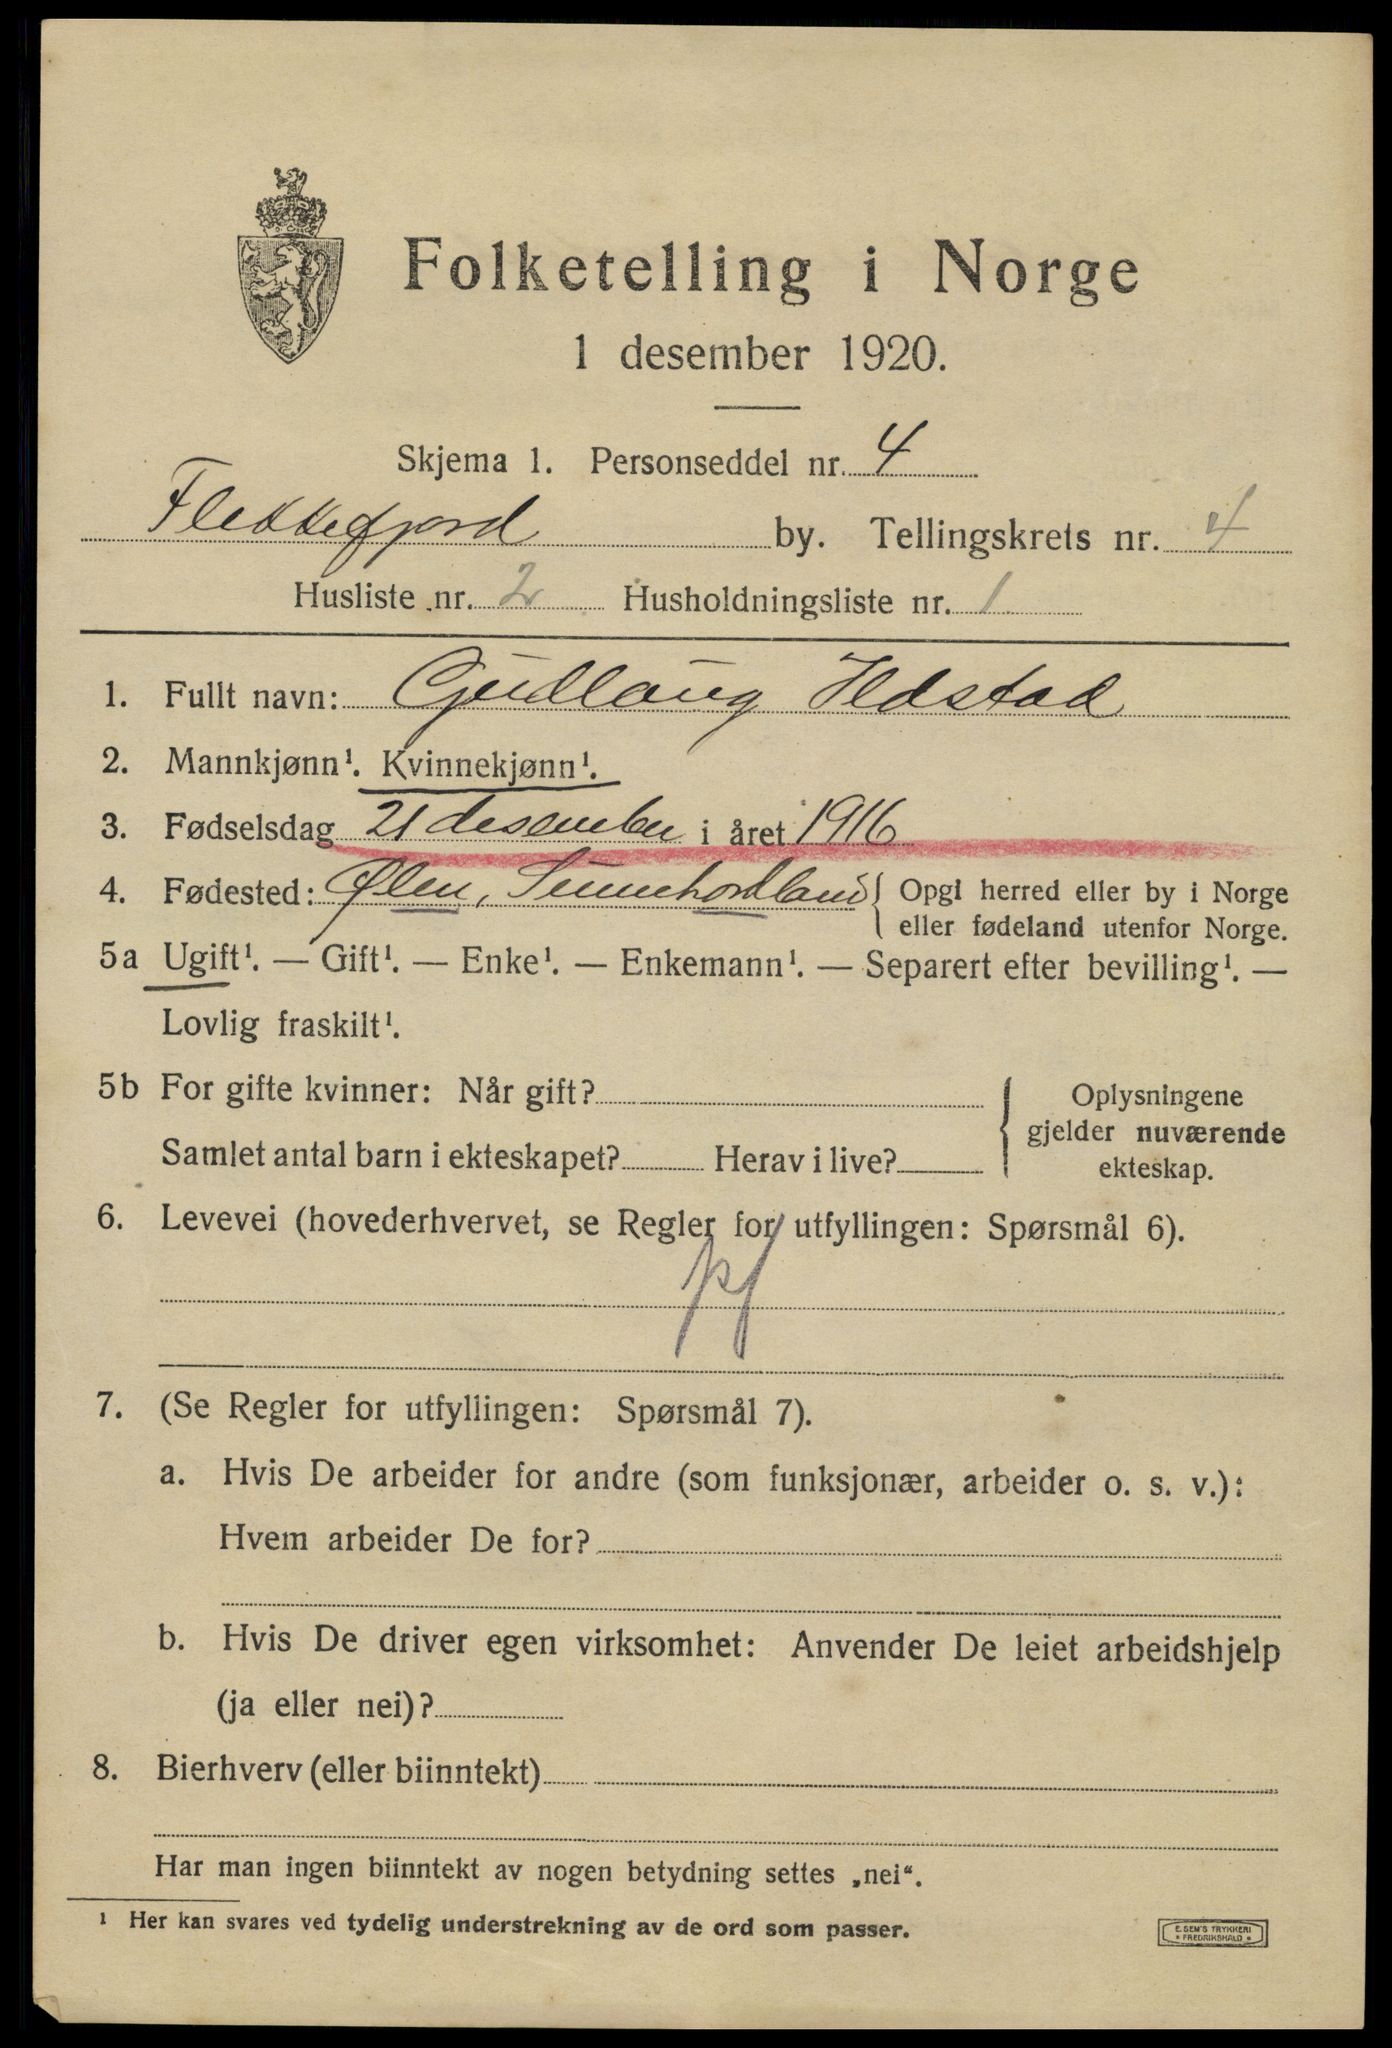 Folketelling i Norge
1 desember 1920.
Skjema 1. Personseddel nr. 4
Flekkefjord by. Tellingskrets nr. 4
Husliste nr. 2 Husholdningsliste nr. 1
1. Fullt navn: Gudlaug Ildstad
2. Mannkjønn¹. Kvinnekjønn¹.
3. Fødselsdag 21 desember i året 1916
4. Fødested: Ølen, Sunnhordland { Opgi herred eller by i Norge
eller fødeland utenfor Norge.
5a Ugift¹. — Gift¹. — Enke¹. — Enkemann¹. — Separert efter bevilling¹. —
Lovlig fraskilt¹.
5b For gifte kvinner: Når gift?
Samlet antal barn i ekteskapet? Herav i live?
Oplysningene
gjelder nuværende
ekteskap.
6. Levevei (hovederhvervet, se Regler for utfyllingen: Spørsmål 6).
pf
7. (Se Regler for utfyllingen: Spørsmål 7).
a. Hvis De arbeider for andre (som funksjonær, arbeider o. s. v.):
Hvem arbeider De for?
b. Hvis De driver egen virksomhet: Anvender De leiet arbeidshjelp
(ja eller nei)?
8. Bierhverv (eller biinntekt)
Har man ingen biinntekt av nogen betydning settes „nei“.
¹ Her kan svares ved tydelig understrekning av de ord som passer.
E. SEM'S TRYKKERI
• FREDRIKSHALD •